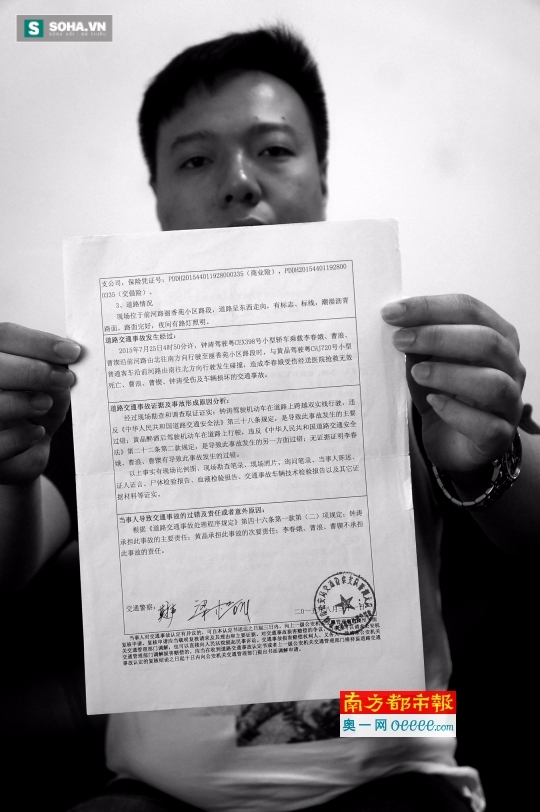 SOHA.VN
支公司，保险凭证号：PDDH20154401192800­0335（商业险），PDDH201544011928000
0335（交强险）。
3、道路情况
现场位于前河路丽香苑小区路段，道路呈东西走向，有标志、标线，潮湿沥青
路面，路面完好，夜间有路灯照明。
道路交通事故发生经过：
2015年7月25日4时50分许，钟涛驾驶粤CEX398号小型轿车乘载李春娥、曹浪、
曹锲沿前河路由北往南方向行驶至丽香苑小区路段时，与黄晶驾驶粤CHJ720号小型
普通客车沿前河路由南往北方向行驶发生碰撞，造成李春娥受伤经送医院抢救无效
死亡、曹浪、曹锲、钟涛受伤及车辆损坏的交通事故。
道路交通事故证据及事故形成原因分析：
经过现场勘查和调查取证证实：钟涛驾驶机动车在道路上跨越双实线行驶，违
反《中华人民共和国道路交通安全法》第三十八条规定，是导致此事故发生的主要
过错；黄晶醉酒后驾驶机动车在道路上行驶，违反《中华人民共和国道路交通安全
法》第二十二条第二款规定，是导致此事故发生的另一方面过错；无证据证明李春
娥、曹浪、曹锲有导致此事故发生的过错。
以上事实有现场比例图、现场勘查笔录、现场照片、询问笔录、当事人陈述、
证人证言、尸体检验报告、血液检验报告、交通事故车辆技术检验报告以及其它证
据材料等证实。
当事人导致交通事故的过错及责任或者意外原因：
根据《道路交通事故处理程序规定》第四十六条第一款第（二）项规定：钟涛
承担此事故的主要责任；黄晶承担此事故的次要责任；李春娥、曹浪、曹锲不承担
此事故的责任。
交通警察：
二〇一 八月
南方都市報
奥一网 oeeee.com